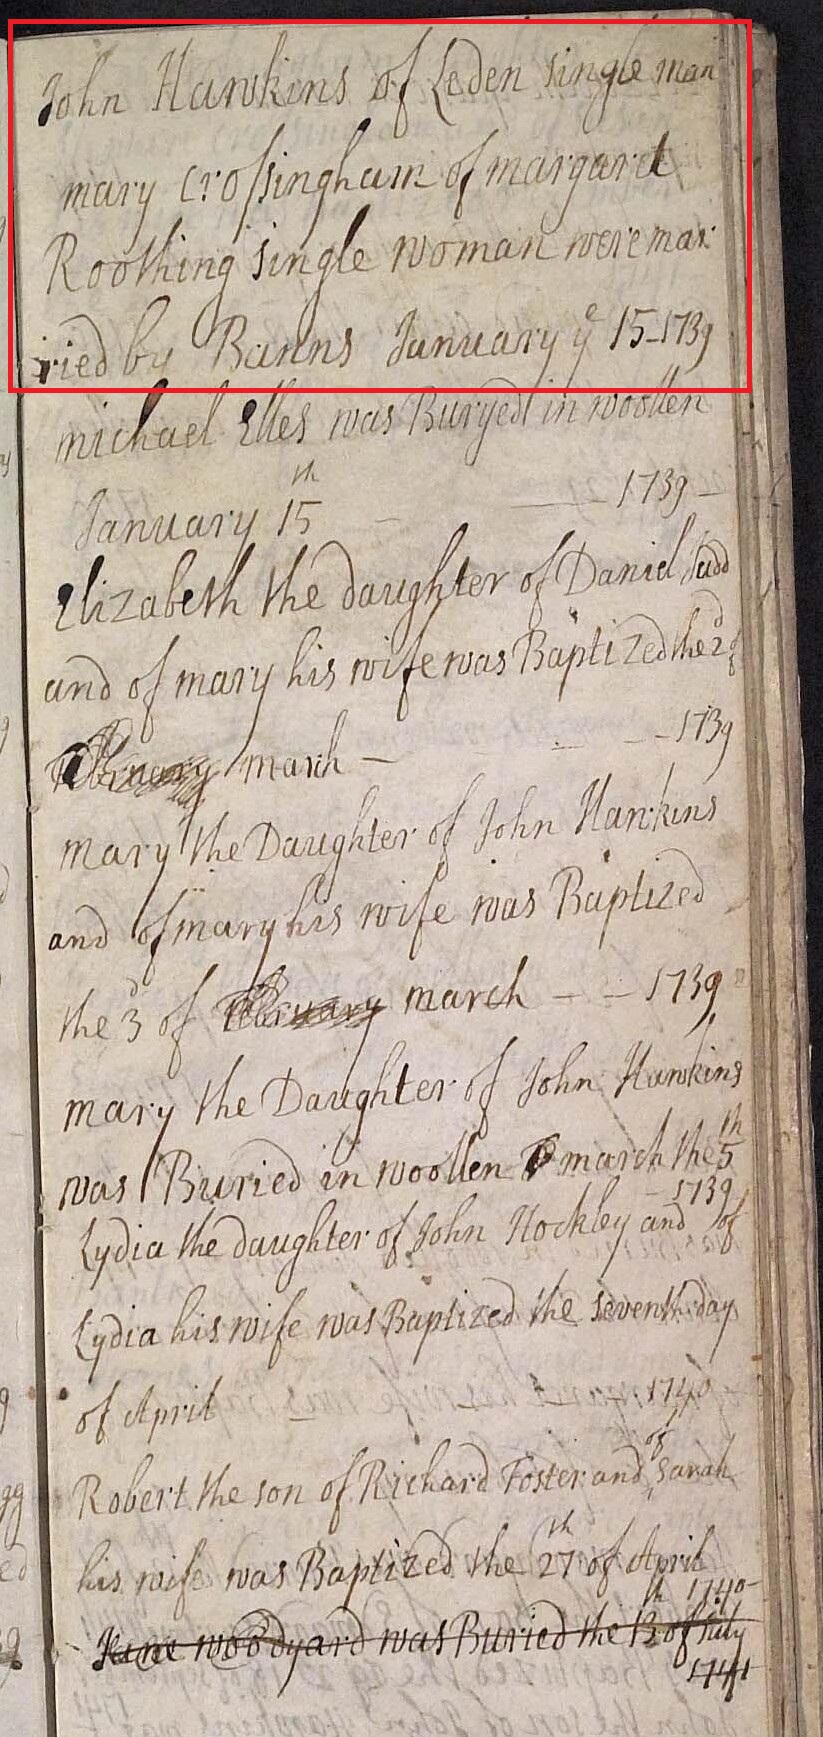 John Hawkins of Leden single man
mary Crosſingham of margaret
Roothing single woman were mar
ried by Banns January yᵉ 15-1739
michael Elles was Buryed in woollen
January 15ᵗʰ - — 1739 -
Elizabeth the daughter of Daniel Judd
and of mary his wife was Baptized the 2ᵈ of
February march — - - - 1739
mary the Daughter of John Hawkins
and of mary his wife was Baptized
the 3ᵈ of February march - - 1739
mary the Daughter of John Hawkins
was Buried in woollen march the 5ᵗʰ
- 1739
Lydia the daughter of John Hockley and of
Lydia his wife was Baptized the seventh day
of April - - 1740
Robert the son of Richard Foster and of Sarah
his wife was Baptized the 27ᵗʰ of April
1740-
Jane woodyard was Buried the 13ᵗʰ of July
1741